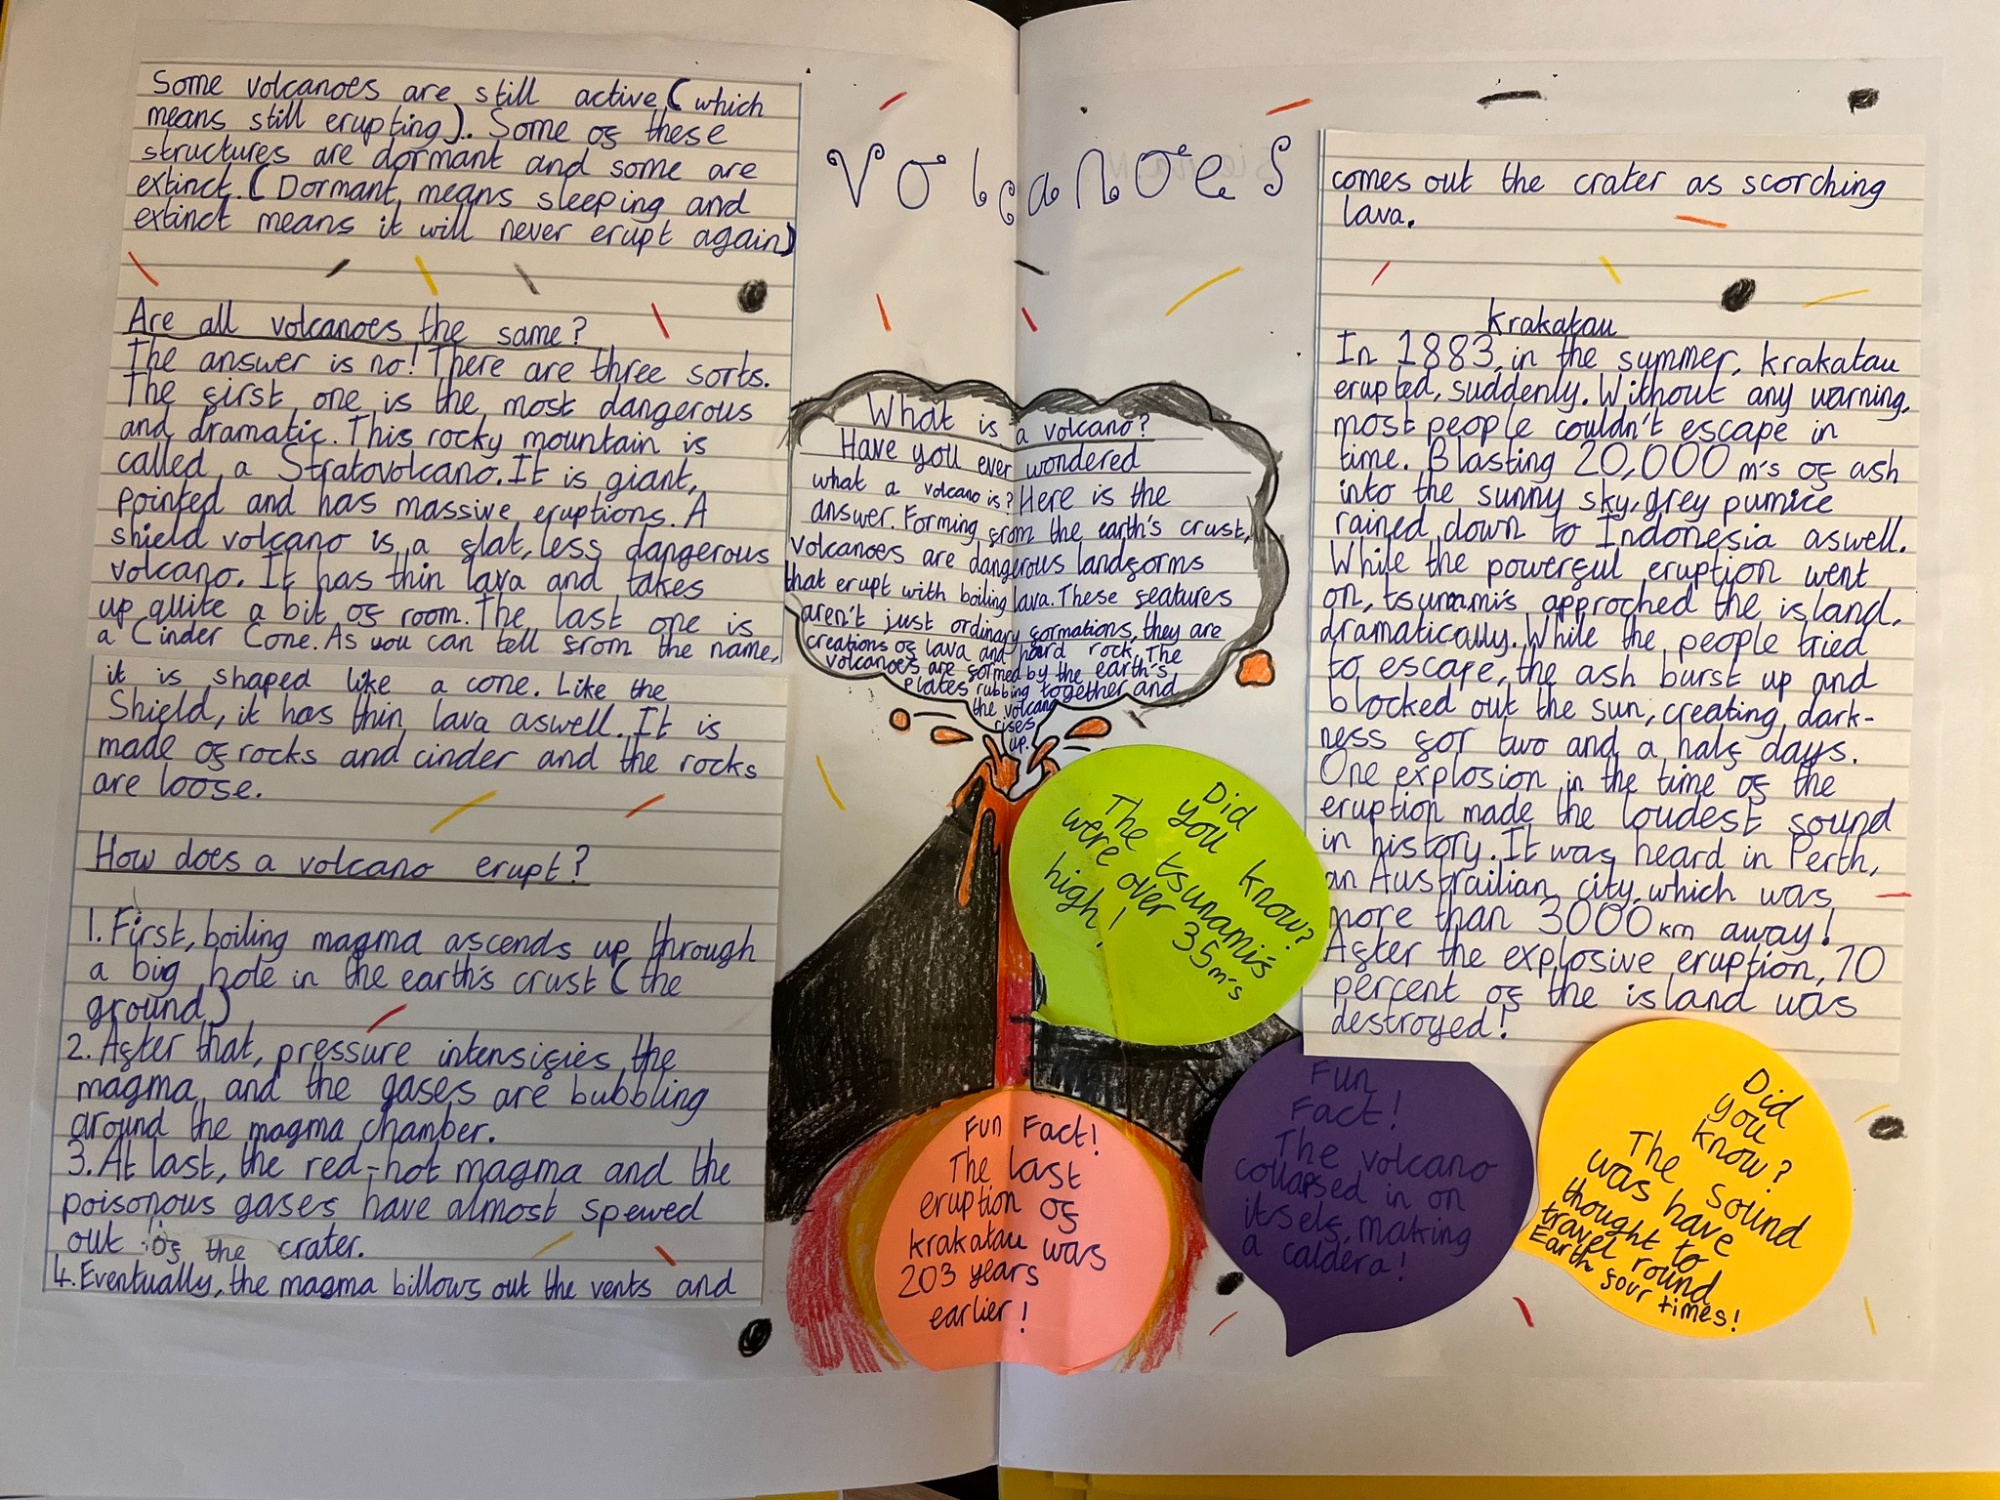 Volcanoes
What is a volcano?
Have you ever wondered
what a volcano is? Here is the
answer. Forming from the earth's crust,
volcanoes are dangerous landforms
that erupt with boiling lava. These features
aren't just ordinary formations, they are
creations of lava and hard rock. The
volcanoes are formed by the earth's
plates rubbing together and
the volcano
rises
up.
Some volcanoes are still active (which
means still erupting). Some of these
structures are dormant and some are
extinct. (Dormant means sleeping and
extinct means it will never erupt again)
Are all volcanoes the same?
The answer is no! There are three sorts.
The first one is the most dangerous
and dramatic. This rocky mountain is
called a Stratovolcano. It is giant,
pointed and has massive eruptions. A
shield volcano is a flat, less dangerous
volcano. It has thin lava and takes
up quite a bit of room. The last one is
a Cinder Cone. As you can tell from the name,
it is shaped like a cone. Like the
Shield, it has thin lava aswell. It is
made of rocks and cinder and the rocks
are loose.
How does a volcano erupt?
1. First, boiling magma ascends up through
a big hole in the earth's crust (the
ground)
2. After that, pressure intensifies, the
magma and the gases are bubbling
around the magma chamber.
3. At last, the red-hot magma and the
poisonous gases have almost spewed
out of the crater.
4. Eventually, the magma billows out the vents and
comes out the crater as scorching
lava.
Krakatau
In 1883, in the summer, krakatau
erupted, suddenly. Without any warning,
most people couldn't escape in
time. Blasting 20,000 m's of ash
into the sunny sky, grey pumice
rained down to Indonesia aswell.
While the powerful eruption went
on, tsunami's approched the island,
dramatically. While the people tried
to escape, the ash burst up and
blocked out the sun, creating dark-
ness for two and a half days.
One explosion in the time of the
eruption made the loudest sound
in history. It was heard in Perth,
an Austrailian city, which was
more than 3000 km away!
After the explosive eruption, 70
percent of the island was
destroyed!
Did
you know?
The tsunami's
were over 35m's
high!
Fun Fact!
The last
eruption of
krakatau was
203 years
earlier!
Fun
Fact!
The volcano
collapsed in on
itself, making
a caldera!
Did
you
know?
The sound
was have
thought to
travel round
Earth four times!